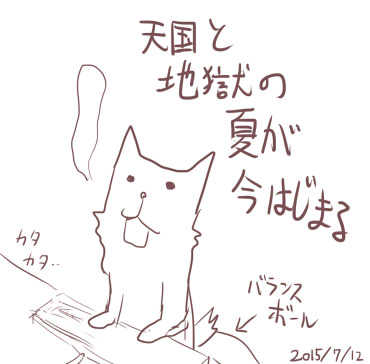 天国と
地獄の
夏が
今はじまる
カタ
カタ..
バランス
ボール
2015/7/12